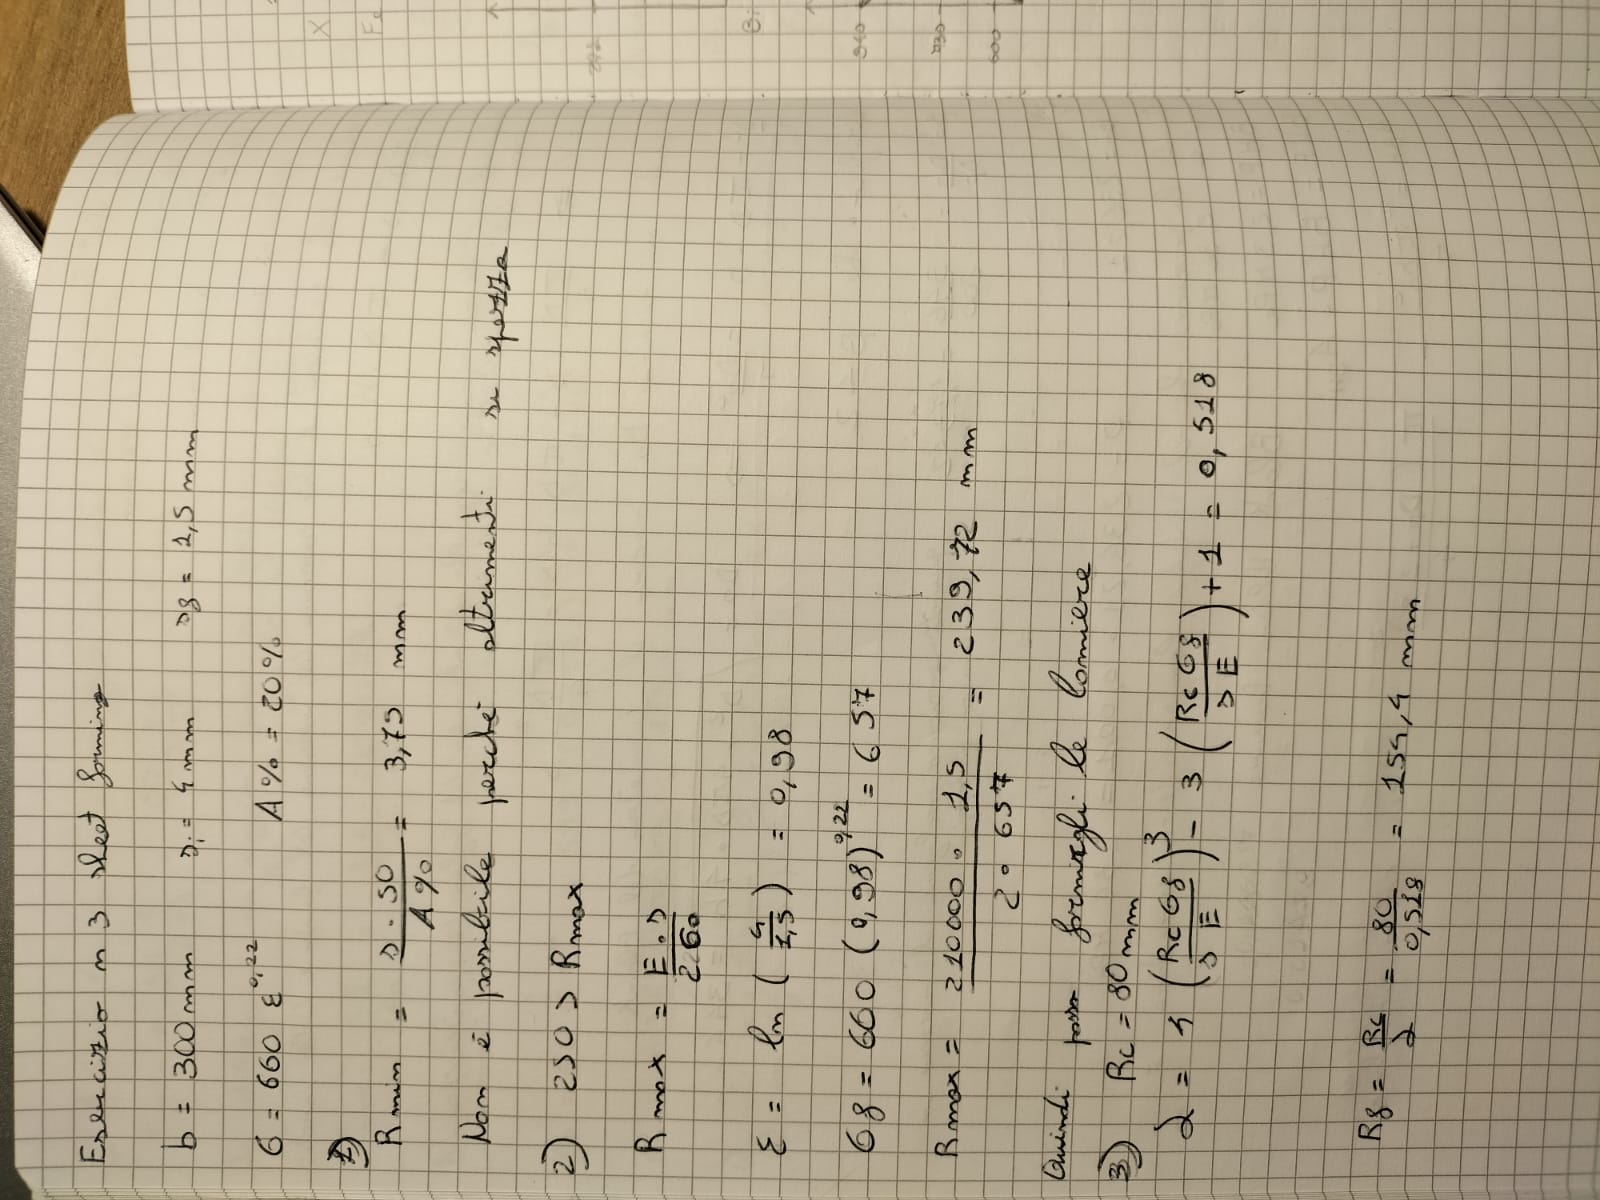 Esercizio n 3 sheet forming
b = 300 mm si = 4 mm sf = 1,5 mm
σ = 660 ε^0,22 A% = 20%
1)
Rmin = s · 50 / A% = 3,75 mm
Non è possibile perché altrimenti si spezza
2) 250 > Rmax
Rmax = E · s / 2 σo
ε = ln (4/1,5) = 0,98
σf = 660 (0,98)^0,22 = 657
Rmax = 210000 · 1,5 / 2 · 657 = 239,72 mm
Quindi posso le lamiere
3) Rc = 80 mm
λ = 4 (Rc σf / s E)^3 - 3 (Rc σf / s E) + 1 = 0,518
Rf = Rc / λ = 80 / 0,518 = 154,4 mm